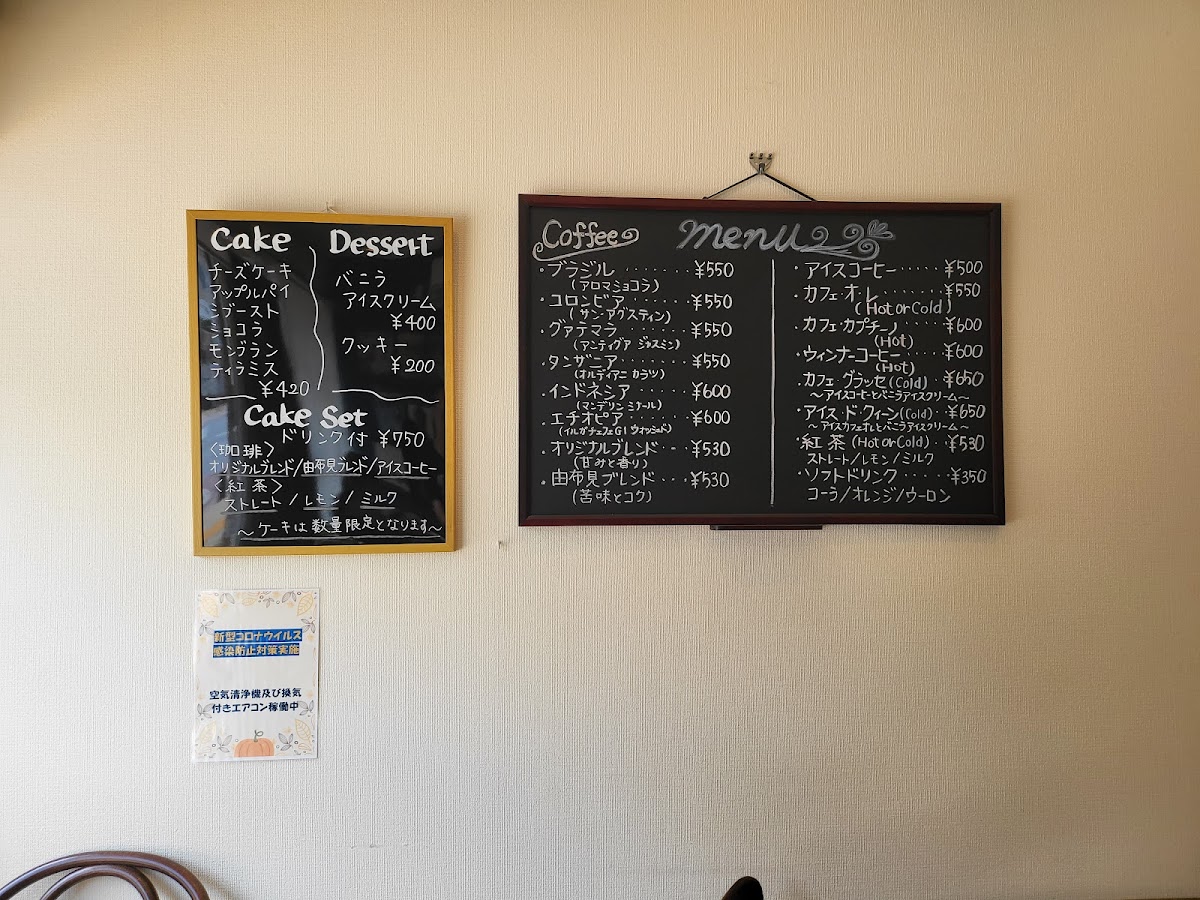 Cake
チーズケーキ
アップルパイ
シブースト
ショコラ
モンブラン
ティラミス
¥420
Dessert
バニラ
アイスクリーム
¥400
クッキー
¥200
Cake Set
ドリンク付 ¥750
〈珈琲〉
オリジナルブレンド/由布見ブレンド/アイスコーヒー
〈紅茶〉
ストレート/レモン/ミルク
～ケーキは数量限定となります～
Coffee menu
・ブラジル・・・・・・・¥550
(アロマショコラ)
・コロンビア・・・・・¥550
(サン・アグスティン)
・グァテマラ・・・・・¥550
(アンティグア ジャスミン)
・タンザニア・・・・・¥550
(オルディアニ カラツ)
・インドネシア・・・・¥600
(マンデリン ミナール)
・エチオピア・・・・・¥600
(イルガチェフェG1 ウォッシュド)
・オリジナルブレンド・・¥530
(甘みと香り)
・由布見ブレンド・・・¥530
(苦味とコク)
・アイスコーヒー・・・・・¥500
・カフェ・オ・レ・・・・・¥550
(Hot or Cold)
・カフェ・カプチーノ・・・¥600
(Hot)
・ウィンナーコーヒー・・・・¥600
(Hot)
・カフェ・グラッセ(Cold)・・¥650
～アイスコーヒーとバニラアイスクリーム～
・アイス・ド・クィーン(Cold)・・¥650
～アイスカフェオレとバニラアイスクリーム～
・紅茶(Hot or Cold)・・・¥530
ストレート/レモン/ミルク
・ソフトドリンク・・・・・¥350
コーラ/オレンジ/ウーロン
新型コロナウイルス
感染防止対策実施
空気清浄機及び換気
付きエアコン稼働中